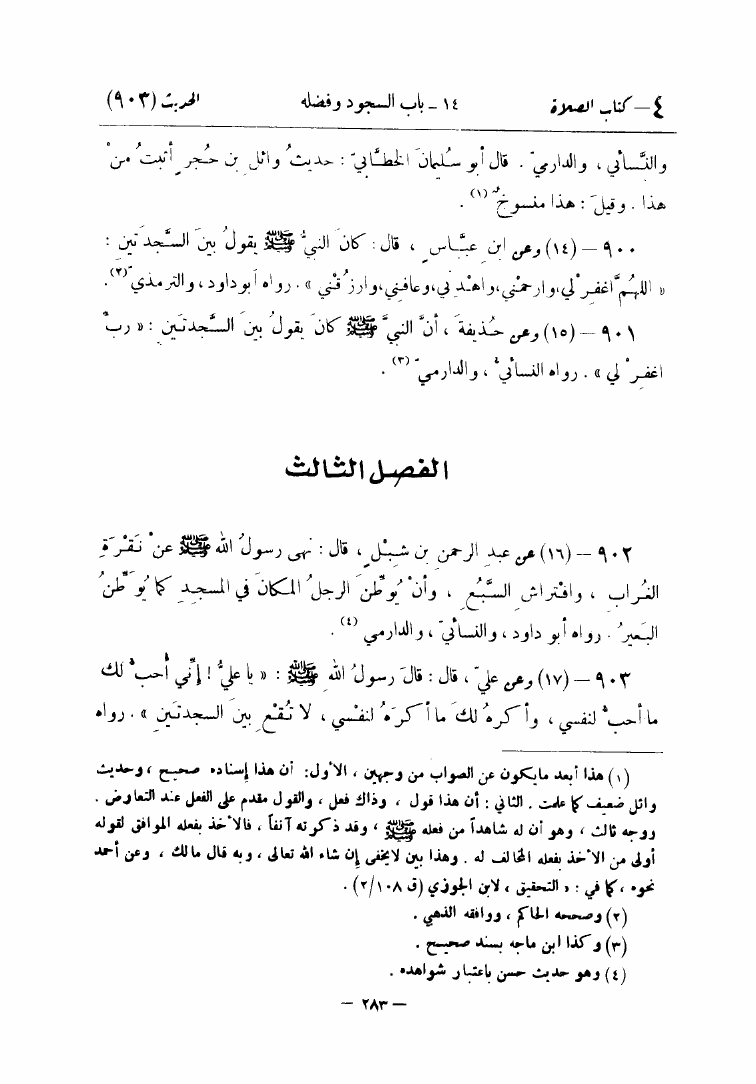 ٤ – كتاب الصلاة ١٤ – باب السجود وفضله الحديث (٩٠٣)
والنَّسائي ، والدارميّ . قال أبو سُليمانَ الخطَّابيّ : حديثُ وائلِ بن حُجرٍ أثبتُ منْ
هذا . وقيلَ : هذا منسوخٌ (١) .
٩٠٠ – (١٤) وعن ابنِ عبَّاسٍ ، قال : كانَ النبيُّ ﷺ يقولُ بينَ السَّجدَتينِ :
« اللهُمَّ اغفِرْ لي، وارحمْني، واهْدِني، وعافِني، وارزُقْني » . رواه أبو داود، والترمذيّ (٢) .
٩٠١ – (١٥) وعن حُذيفةَ ، أنَّ النبيَّ ﷺ كانَ يقولُ بينَ السَّجدَتَينِ : « ربِّ
اغفِرْ لي » . رواه النسائيُّ ، والدارميّ (٣) .
الفصل الثالث
٩٠٢ – (١٦) عن عبدِ الرحمنِ بن شِبْلٍ ، قال : نهى رسولُ الله ﷺ عنْ نَقْرَةِ
الغُرابِ ، وافتراشِ السَّبُعِ ، وأنْ يُوَطِّنَ الرجلُ المكانَ في المسجدِ كما يُوَطِّنُ
البَعيرُ . رواه أبو داود ، والنسائيّ ، والدارمي (٤) .
٩٠٣ – (١٧) وعن عليّ ، قال : قالَ رسولُ اللهِ ﷺ : « يا عليُّ ! إنِّي أُحبُّ لك
ما أُحبُّ لنفسي ، وأكرهُ لكَ ما أكرَهُ لنفْسي ، لا تُقْعِ بينَ السجدتَينِ » . رواه
(١) هذا أبعد مايكون عن الصواب من وجهين ، الأول: أن هذا إسناده صحيح ، وحديث
وائل ضعيف كما علمت . الثاني : أن هذا قول ، وذاك فعل ، والقول مقدم على الفعل عند التعارض .
ووجه ثالث ، وهو أن له شاهداً من فعله ﷺ ، وقد ذكرته آنفاً ، فالأخذ بفعله الموافق لقوله
أولى من الأخذ بفعله المخالف له . وهذا بين لايخفى إن شاء الله تعالى ، وبه قال مالك ، وعن أحمد
نحوه ، كما في : « التحقيق ، لابن الجوزي (ق ٢/١٠٨) .
(٢) وصححه الحاكم ، ووافقه الذهبي .
(٣) وكذا ابن ماجه بسند صحيح .
(٤) وهو حديث حسن باعتبار شواهده .
– ٢٨٣ –